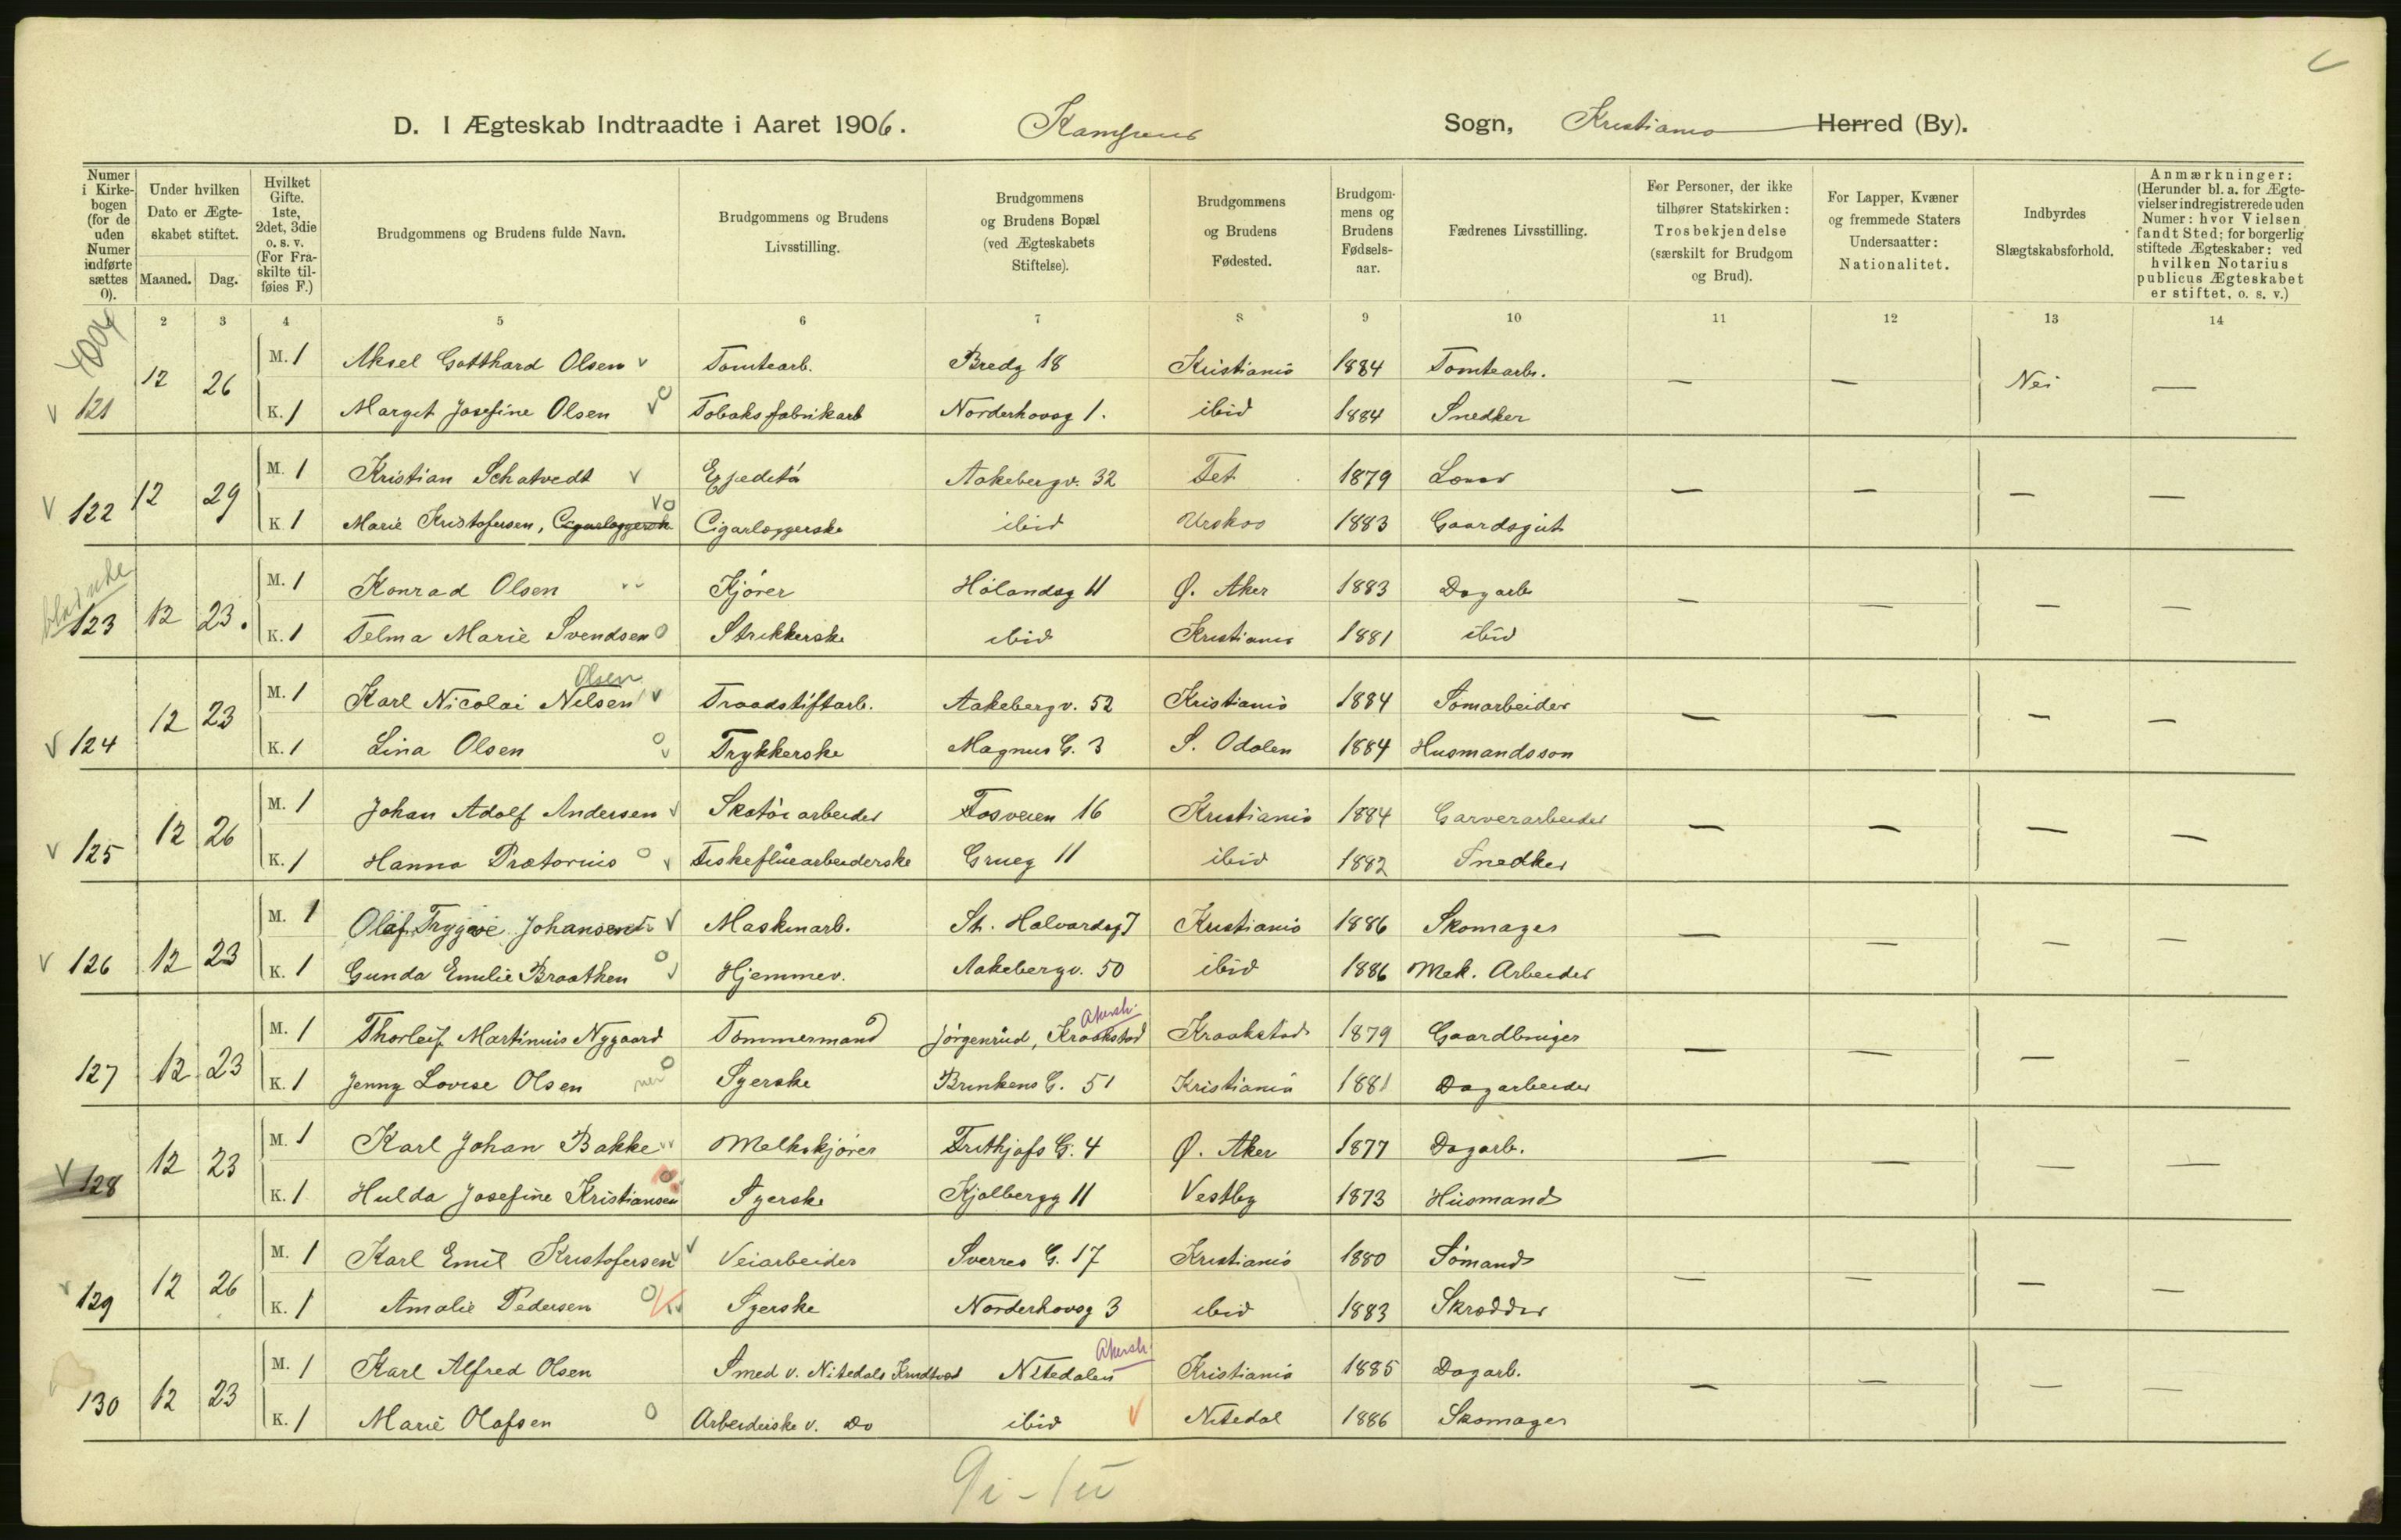 D. I Ægteskab Indtraadte i Aaret 1906. Kampens Sogn, Kristiania Herred (By).
Numer i Kirkebogen (for de uden Numer indførte sættes 0).
Under hvilken Dato er Ægteskabet stiftet.
Maaned. Dag.
Hvilket Gifte. 1ste, 2det, 3die o. s. v. (For Fraskilte tilføies F.)
Brudgommens og Brudens fulde Navn.
Brudgommens og Brudens Livsstilling.
Brudgommens og Brudens Bopæl (ved Ægteskabets Stiftelse).
Brudgommens og Brudens Fødested.
Brudgommens og Brudens Fødselsaar.
Fædrenes Livsstilling.
For Personer, der ikke tilhører Statskirken: Trosbekjendelse (særskilt for Brudgom og Brud).
For Lapper, Kvæner og fremmede Staters Undersaatter: Nationalitet.
Indbyrdes Slægtskabsforhold.
Anmærkninger: (Herunder bl. a. for Ægtevielser indregistrerede uden Numer: hvor Vielsen fandt Sted; for borgerlig stiftede Ægteskaber: ved hvilken Notarius publicus Ægteskabet er stiftet, o. s. v.)
2 3 4 5 6 7 8 9 10 11 12 13 14
121 12 26 M. 1 Aksel Gotthard Olsen Tomtearb. Bredg 18 Kristiania 1884 Tomtearb. — — Nei —
K. 1 Margit Josefine Olsen Tobaksfabrikarb Norderhovsg 1. ibid 1884 Snedker
122 12 29 M. 1 Kristian Schatvedt Expeditør Aakebergv. 32 Fet 1879 — — — —
K. 1 Marie Kristofersen, Cigarlæggersk Cigarlæggerske ibid Urskog 1883 Gaardsgut
123 12 23. M. 1 Konrad Olsen Kjører Hølandsg 11 Ø. Aker 1883 Dagarb — — — —
K. 1 Telma Marie Svendsen Strikkerske ibid Kristiania 1881 ibid
Olsen
124 12 23 M. 1 Karl Nicolai Nilsen Traadstiftarb. Aakebergv. 52 Kristiania 1884 Tomarbeider — — — —
K. 1 Lina Olsen Trykkerske Magnus G. 3 S. Odalen 1884 Husmandsson
125 12 26 M. 1 Johan Adolf Andersen Skotøiarbeider Fosveien 16 Kristiania 1884 Garverarbeider — — — —
K. 1 Hanna Prætorius Fiskeflùearbeiderske Grueg 11 ibid 1882 Snedker
126 12 23 M. 1 Olaf Trygve Johansen Maskinarb. St. Halvardsg 7 Kristiania 1886 Skomager — — — —
K. 1 Gunda Emilie Braathen Hjemmev. Aakebergv. 50 ibid 1886 Mek. Arbeider
Akersh.
127 12 23 M. 1 Thorleif Martinius Nygaard Tømmermand Jørgenrud, Kraakstad Kraakstad 1879 Gaardbruger — — — —
K. 1 Jenny Lovise Olsen Syerske Brinkens G. 51 Kristiania 1881 Dagarbeider
128 12 23 M. 1 Karl Johan Bakke Melkekjører Frithjofs G. 4 Ø. Aker 1877 Dagarb. — — — —
K. 1 Hulda Josefine Kristiansen Syerske Kjølbergg 11 Vestby 1873 Husmand
129 12 26 M. 1 Karl Emil Kristofersen Veiarbeider Sverres G. 17 Kristiania 1880 Sømand — — — —
K. 1 Amalie Pedersen Syerske Norderhovsg 3 ibid 1883 Skrædder
Akersh.
130 12 23 M. 1 Karl Alfred Olsen Smed v. Nitedals Krudtværk Nitedalen Kristiania 1885 Dagarb. — — — —
K. 1 Marie Olafsen Arbeiderske v. Do ibid Nitedal 1886 Skomager